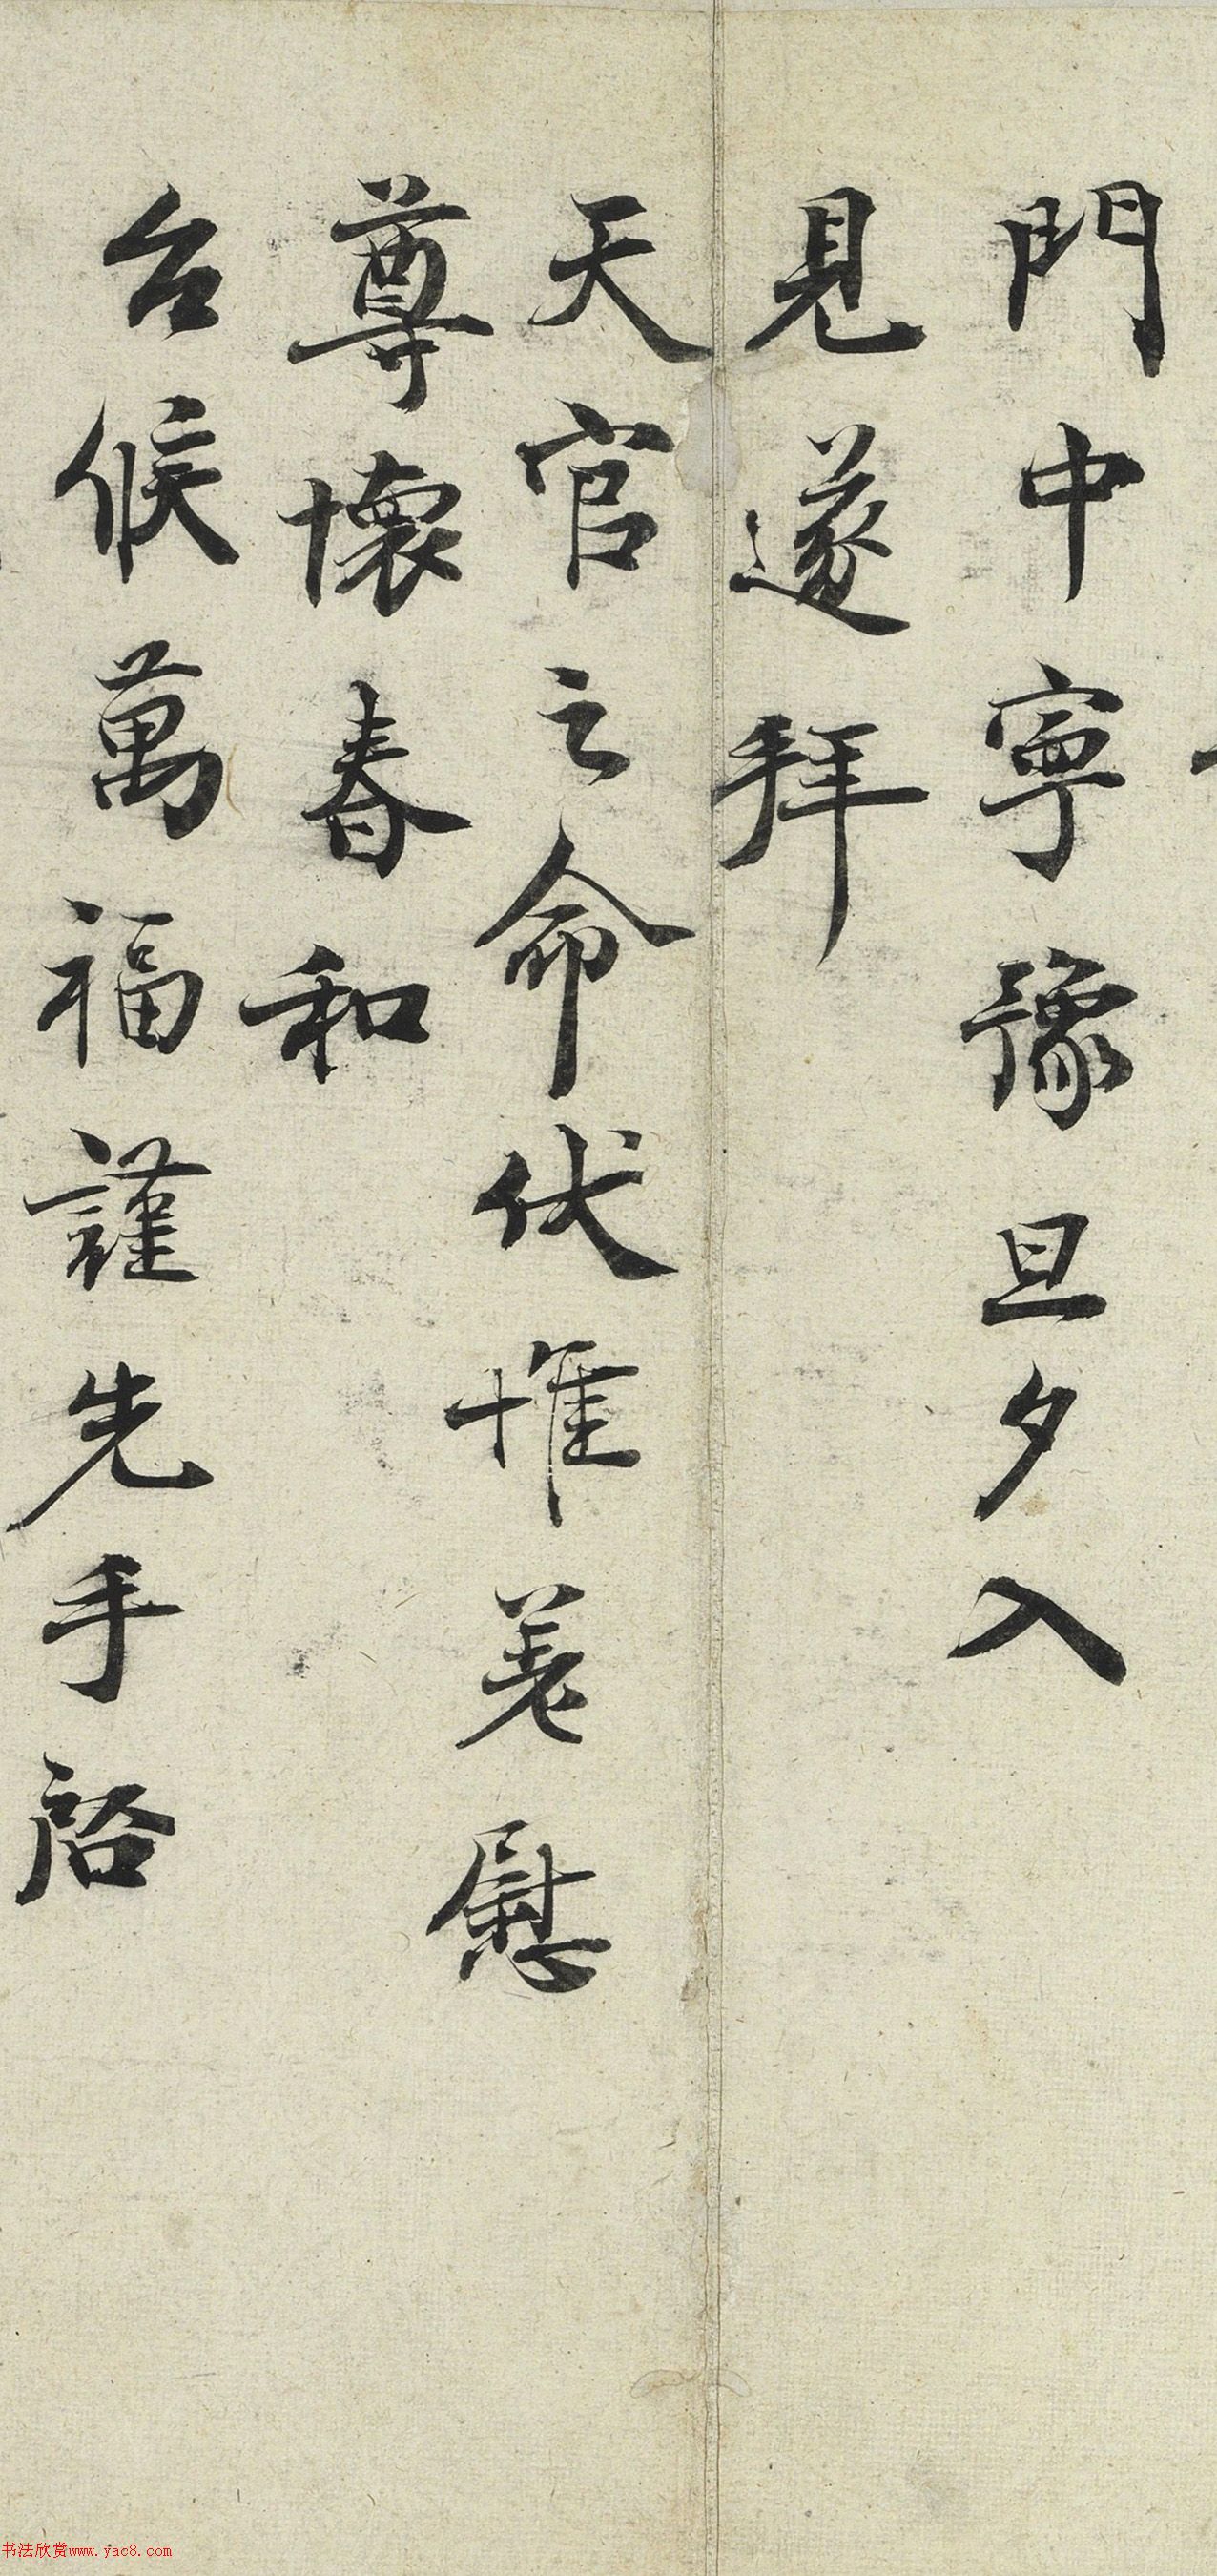 門中寧豫旦夕入
見遂拜
天官之命伏惟差慰
尊懷春和
台候萬福謹先手啓
书法欣赏www.yac8.com